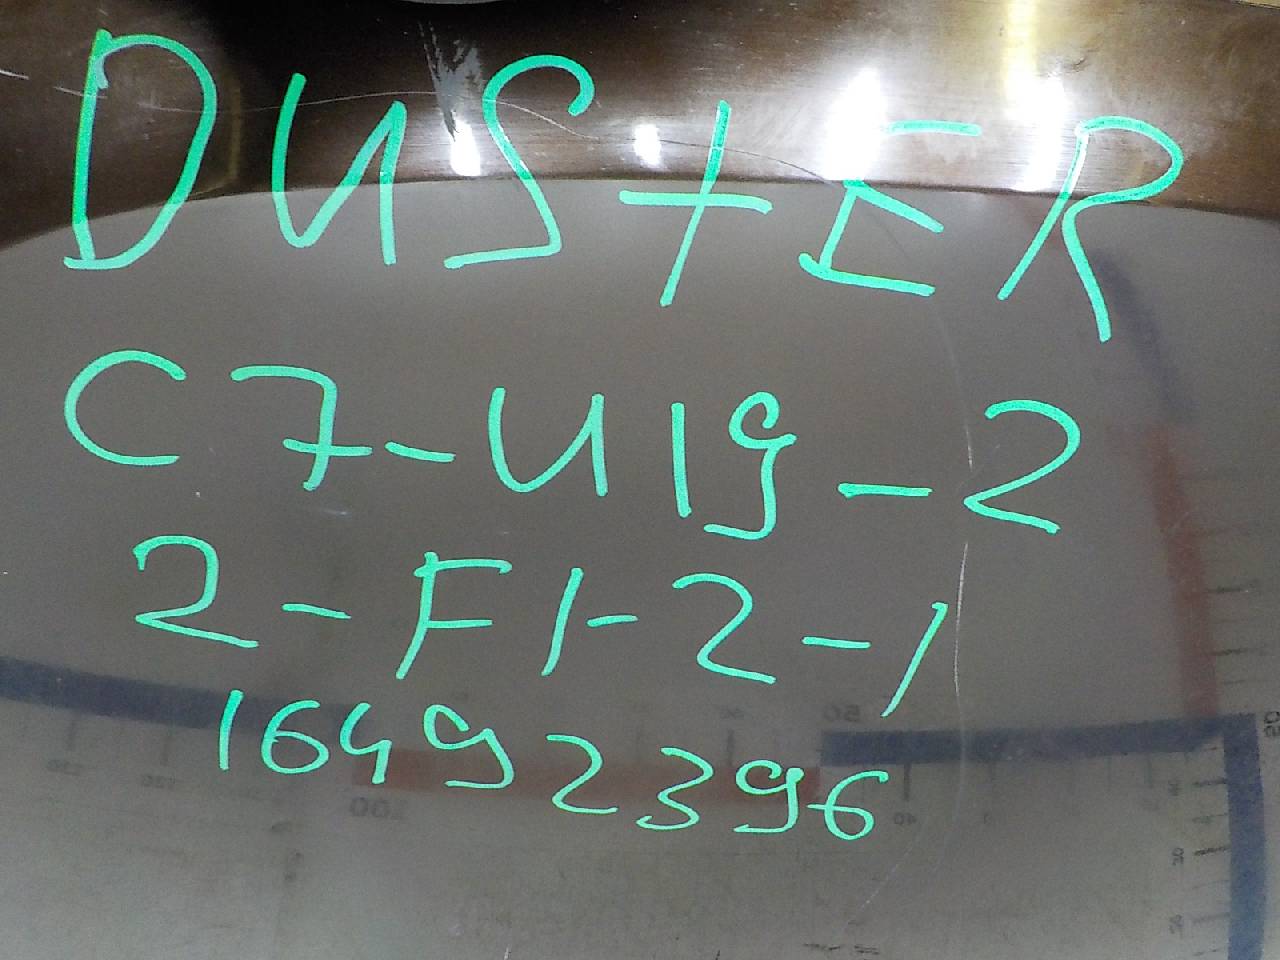 DUSTER
C7-U19-2
2-F1-2-1
16492396